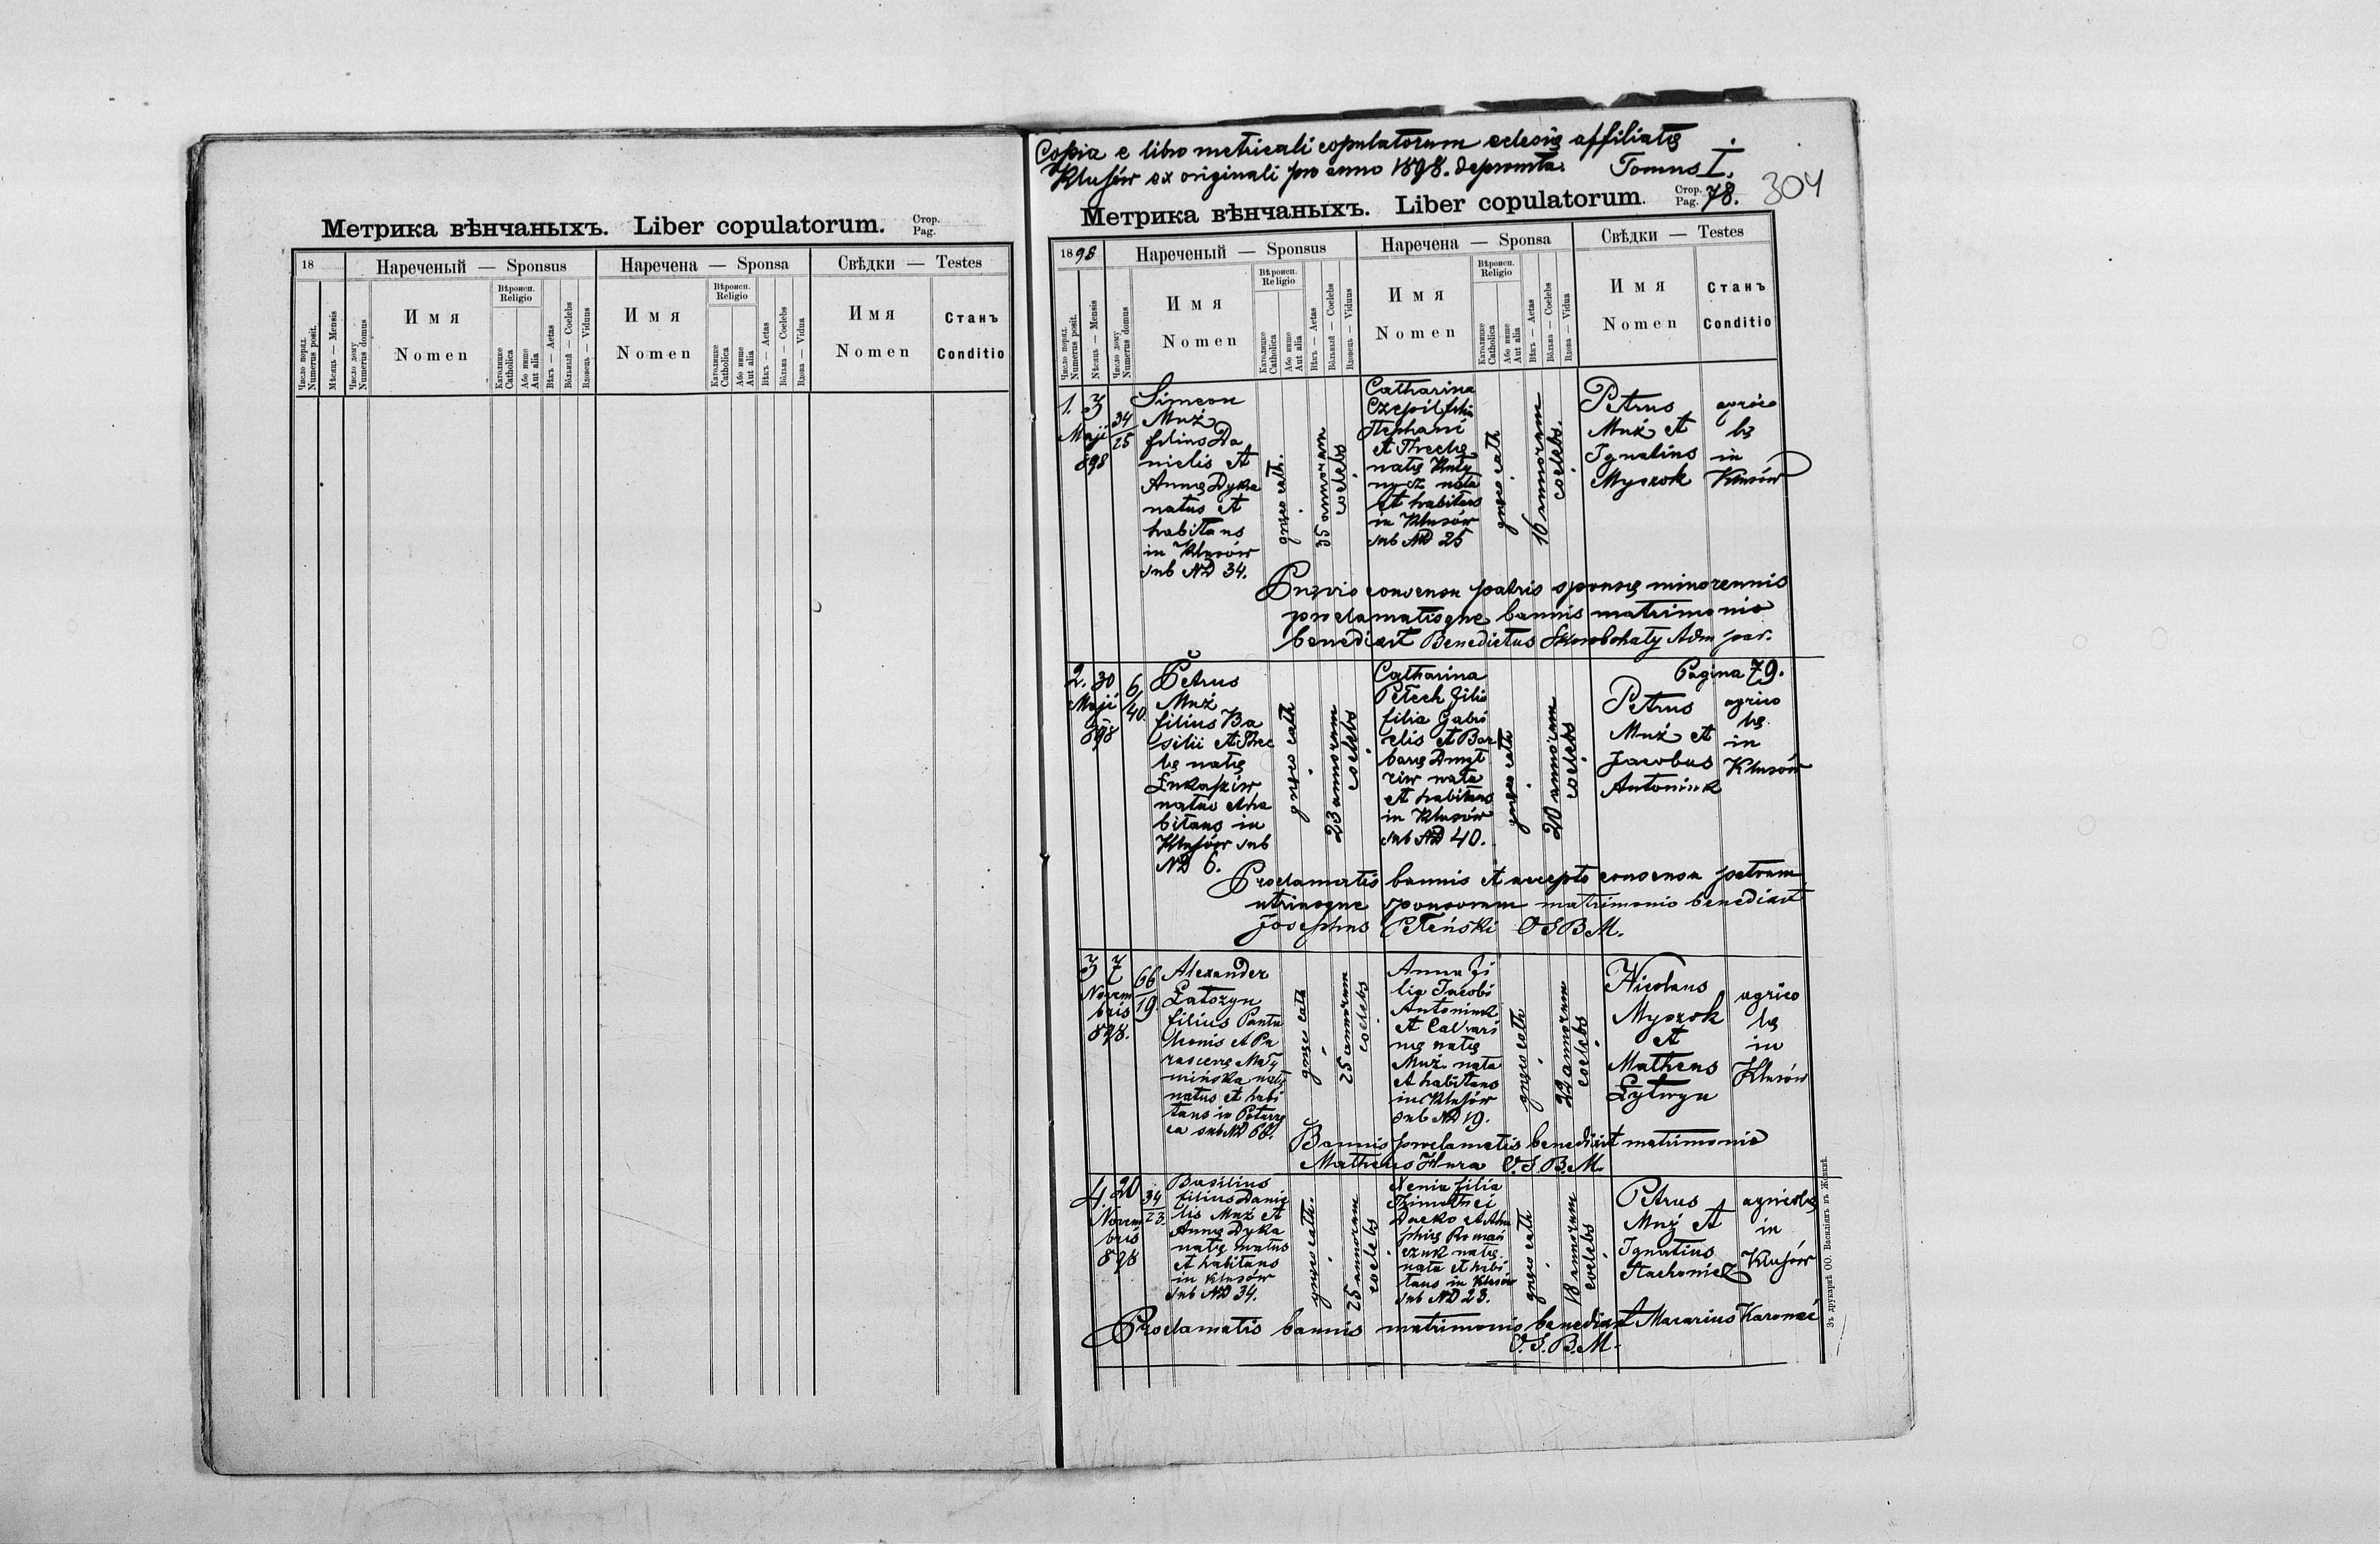 Метрика вѣнчаныхъ. Liber copulatorum. Стор. Pag.
18
Нареченый — Sponsus
Наречена — Sponsa
Свѣдки — Testes
Число поряд. Numerus posit.
Мѣсяць — Mensis
Число дому Numerus domus
Имя
Nomen
Вѣроисп. Religio
Католицке Catholica
Або инше Aut alia
Вѣкъ — Aetas
Вôльный — Coelebs
Вдовець — Viduus
Имя
Nomen
Вѣроисп. Religio
Католицке Catholica
Або инше Aut alia
Вѣкъ — Aetas
Вôльна — Coelebs
Вдова — Vidua
Имя
Nomen
Станъ
Conditio
Copia e libro metricali copulatorum eclesię affiliatę
Klusów ex originali pro anno 1898. depromta. Tomus I.
304
Метрика вѣнчаныхъ. Liber copulatorum. Стор. Pag. 78.
1898
Нареченый — Sponsus
Наречена — Sponsa
Свѣдки — Testes
Число поряд. Numerus posit.
Мѣсяць — Mensis
Число дому Numerus domus
Имя
Nomen
Вѣроисп. Religio
Католицке Catholica
Або инше Aut alia
Вѣкъ — Aetas
Вôльный — Coelebs
Вдовець — Viduus
Имя
Nomen
Вѣроисп. Religio
Католицке Catholica
Або инше Aut alia
Вѣкъ — Aetas
Вôльна — Coelebs
Вдова — Vidua
Имя
Nomen
Станъ
Conditio
1.
3
Maji
898
34
25
Simeon
Muź
filius Da
nielis et
Annę Dyka
natus et
habitans
in Klusów
sub ND 34.
gręco cath.
35 annorum
coelebs
Catharina
Czepil filia
Stephani
et Theclę
natę
nata
et habitans
in Klusów
sub ND 25
gręco cath
16 annorum
coelebs.
Petrus
Muź et
Ignatius
Myszok
agrico
lę
in
Klusów
Pręvio consensu patris sponsę minorennis
proclamatisque bannis matrimonio
benedixit Benedictus Skorobohaty Adm par.
2.
30
Maji
898
6
40.
Petrus
Muź
filius Ba
silii et Thec
lę natę
Łukasziw
natus et ha
bitans in
Klusów sub
ND 6.
gręco cath
23 annorum
coelebs
Catharina
Petech fili
filia Gabri
elis et Bar
barę Dmyt
riw nata
et habitans
in Klusów
sub ND 40.
gręco cath
20 annorum
coelebs
Pagina 79.
Petrus
Muź et
Jacobus
Antoniuk
agrico
lę
in
Klusów
Proclamatis bannis et accepto consensu patrum
utriusque sponsorum matrimonio benedixit
Josephus OSBM.
3
7
Novem
bris
898.
66
19.
Alexander
Łatoszyn
filius Panta
leonis et Pa
rascevę Maty
mińska natę
natus et habi
tans in Poturzy
ca sub ND 66.
gręco cath
25 annorum
coelebs
Anna fi
lia Jacobi
Antoniuk
et Cathari
nę natę
Muź nata
et habitans
in Klusów
sub ND 19.
gręco cath
22 annorum
coelebs
Nicolaus
Myszok
et
Matheus
Łytwyn
agrico
lę
in
Klusów
Bannis proclamatis benedixit matrimonio
Matheus Hura O.S.B.M.
4.
20
Novem
bris
898
34
23.
Basilius
filius Danie
lis Muź et
Annę Dyka
natę natus
et habitans
in Klusów
sub ND 34.
gręco cath.
25 annorum
coelebs
Xenia filia
Timothei
Dacko et Aga
phię Roman
czuk natę.
nata et habi
tans in Klusów
sub ND 23.
gręco cath
18 annorum
coelebs
Petrus
Muź et
Ignatius
Stachowicz
agricolę
in
Klusów
Proclamatis bannis matrimonio benedixit Macarius
O.S.B.M.
Зъ друкарнѣ ОО. Василіянъ въ Жовквѣ.